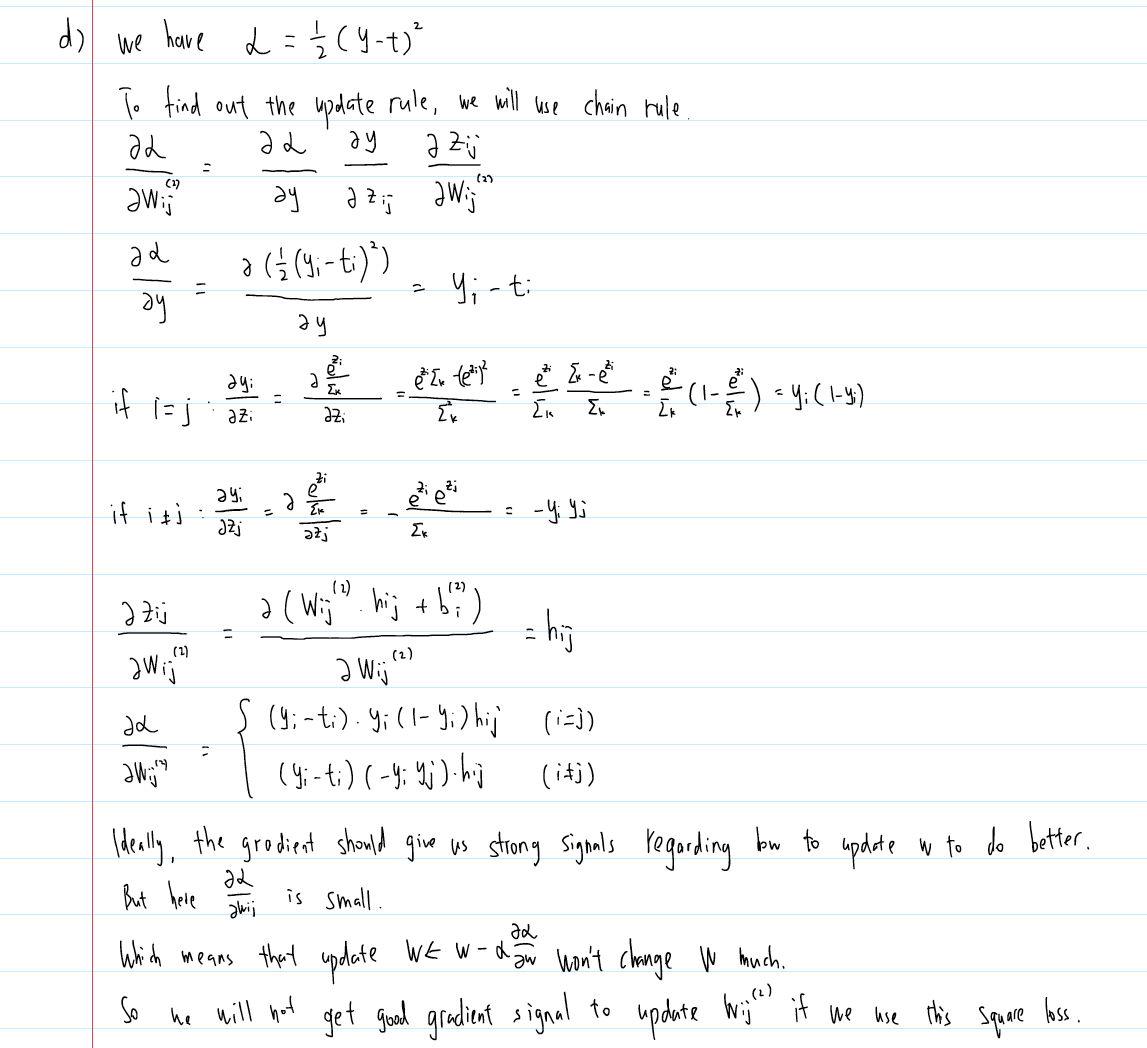 d) we have L = 1/2 (y-t)²
To find out the update rule, we will use chain rule.
∂L/∂Wij⁽²⁾ = ∂L/∂y ∂y/∂zij ∂zij/∂Wij⁽²⁾
∂L/∂y = ∂(1/2(yi-ti)²)/∂y = yi - ti
if i=j : ∂yi/∂zi = ∂(e^zi/Σk)/∂zi = (e^zi Σk -(e^zi)²)/Σk² = e^zi/Σk (Σk - e^zi)/Σk = e^zi/Σk (1 - e^zi/Σk) = yi(1-yi)
if i≠j : ∂yi/∂zj = ∂(e^zi/Σk)/∂zj = - e^zi e^zj/Σk = -yi yj
∂zij/∂Wij⁽²⁾ = ∂(Wij⁽²⁾ · hij + bi⁽²⁾)/∂Wij⁽²⁾ = hij
∂L/∂Wij⁽²⁾ = { (yi-ti) · yi(1-yi) hij (i=j)
(yi-ti)(-yi yj) · hij (i≠j)
Ideally, the gradient should give us strong signals regarding how to update w to do better.
But here ∂L/∂wij is small.
Which means that update W ← W - α ∂L/∂w won't change W much.
So we will not get good gradient signal to update Wij⁽²⁾ if we use this square loss.